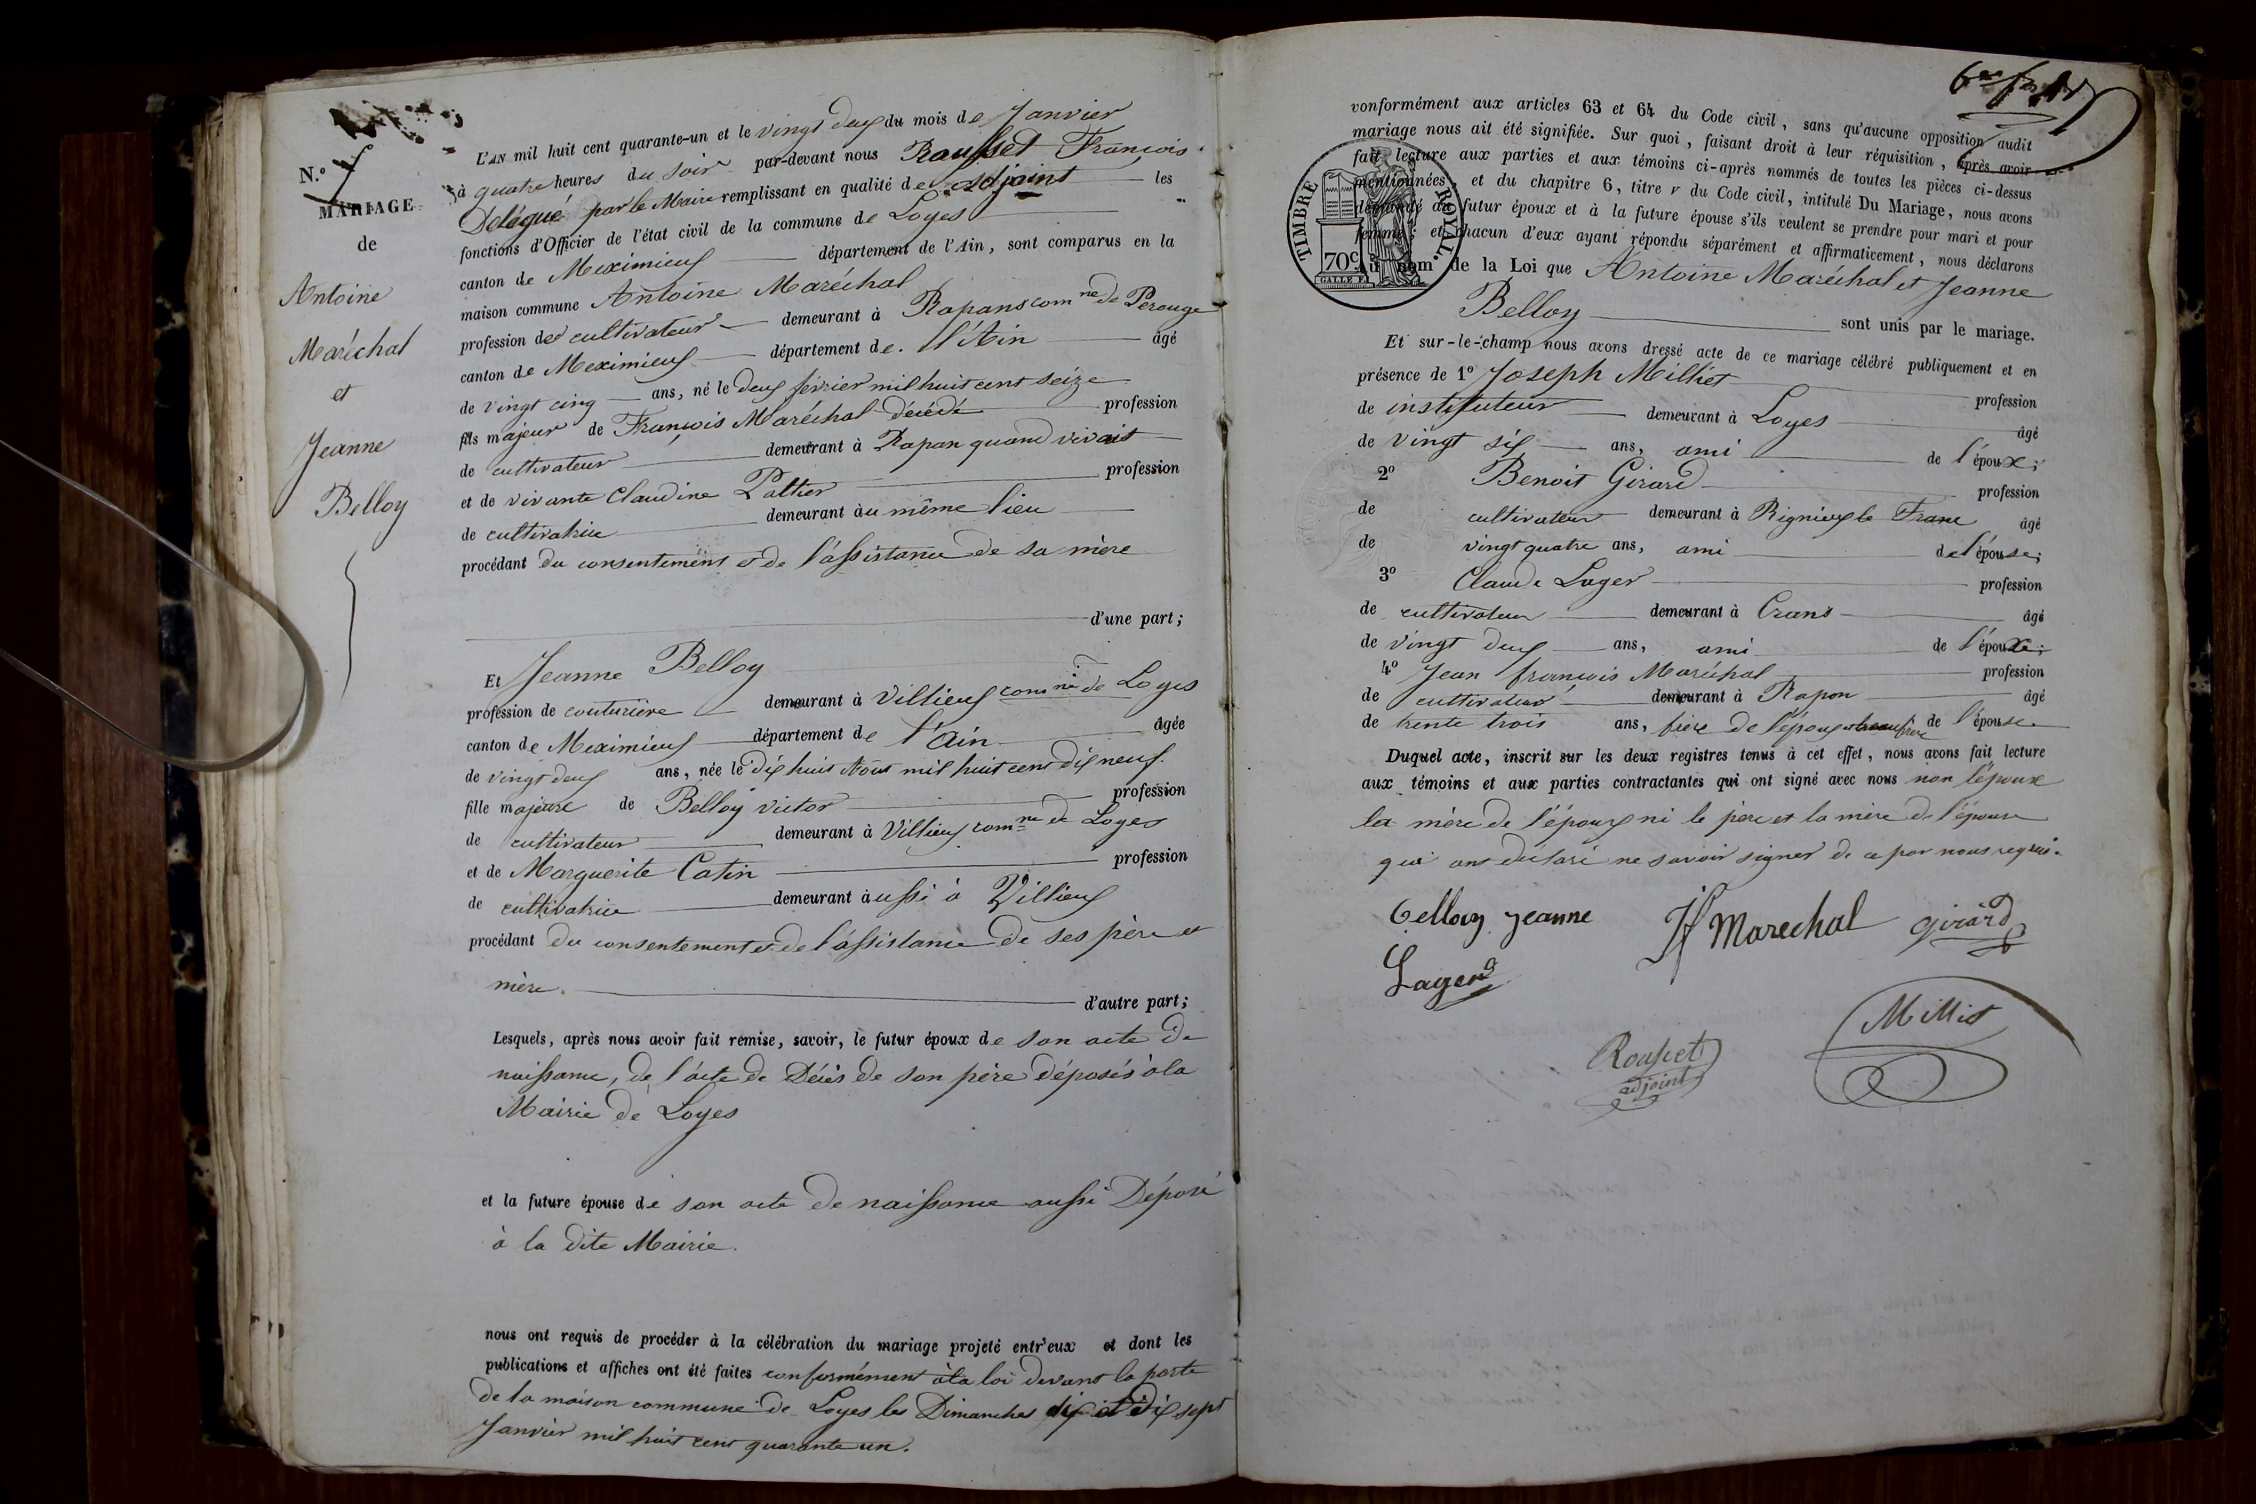 N.º
MARIAGE
de
Antoine
Maréchal
et
Jeanne
Belloy
L'AN mil huit cent quarante-un et le vingt deux du mois de Janvier
à quatre heures du soir par-devant nous Rousset François
Délégué par le Maire remplissant en qualité de adjoint les
fonctions d'Officier de l'état civil de la commune de Loyes
canton de Meximieux département de l'Ain, sont comparus en la
maison commune Antoine Maréchal
profession de cultivateur demeurant à Rapans comne de Perouge
canton de Meximieux département de l'Ain âgé
de vingt cinq ans, né le deux février mil huit cent seize
fils majeur de François Maréchal décédé profession
de cultivateur demeurant à Rapan quand vivait
et de vivante Claudine profession
de cultivatrice demeurant àu même lieu
procédant du consentement et de l'assistance de sa mère
d'une part;
Et Jeanne Belloy
profession de couturière demeurant à Villieux comne de Loyes
canton de Meximieux département de l'Ain âgée
de vingt deux ans, née le dix huit Août mil huit cent dix neuf
fille majeure de Belloy victor profession
de cultivateur demeurant à Villieux comne de Loyes
et de Marguerite Catin profession
de cultivatrice demeurant àussi à Villieux
procédant du consentement et de l'assistance de ses père et
mère. d'autre part;
Lesquels, après nous avoir fait remise, savoir, le futur époux de son acte de
naissance, de l'acte de Décès de son père déposés à la
Mairie de Loyes
et la future épouse de son acte de naissance aussi Déposé
à la dite Mairie.
nous ont requis de procéder à la célébration du mariage projeté entr'eux et dont les
publications et affiches ont été faites conformément à la loi devant la porte
de la maison commune de Loyes les Dimanches dix et dix sept
Janvier mil huit cent quarante un.
conformément aux articles 63 et 64 du Code civil, sans qu'aucune opposition audit
mariage nous ait été signifiée. Sur quoi, faisant droit à leur réquisition, après avoir
fait lecture aux parties et aux témoins ci-après nommés de toutes les pièces ci-dessus
mentionnées, et du chapitre 6, titre v du Code civil, intitulé Du Mariage, nous avons
demandé au futur époux et à la future épouse s'ils veulent se prendre pour mari et pour
femme; et chacun d'eux ayant répondu séparément et affirmativement, nous déclarons
au nom de la Loi que Antoine Maréchal et Jeanne
Belloy sont unis par le mariage.
TIMBRE ROYAL.
70c
Et sur-le-champ nous avons dressé acte de ce mariage célébré publiquement et en
présence de 1º Joseph Milliet profession
de instituteur demeurant à Loyes âgé
de vingt six ans, ami de l'époux;
2º Benoit Girard profession
de cultivateur demeurant à Rignieux le Franc âgé
de vingt quatre ans, ami de l'épouse;
3º Claude Lager profession
de cultivateur demeurant à Crans âgé
de vingt deux ans, ami de l'époux;
4º Jean françois Maréchal profession
de cultivateur demeurant à Rapon âgé
de trente trois ans, frère de l'époux beau frère de l'épouse
Duquel acte, inscrit sur les deux registres tenus à cet effet, nous avons fait lecture
aux témoins et aux parties contractantes qui ont signé avec nous non l'époux
la mère de l'époux ni le père et la mère de l'épouse
qui ont déclaré ne savoir signer de ce par nous requis.
Belloy Jeanne
Jf Marechal
girard
Lager
Milliet
Rousset
adjoint